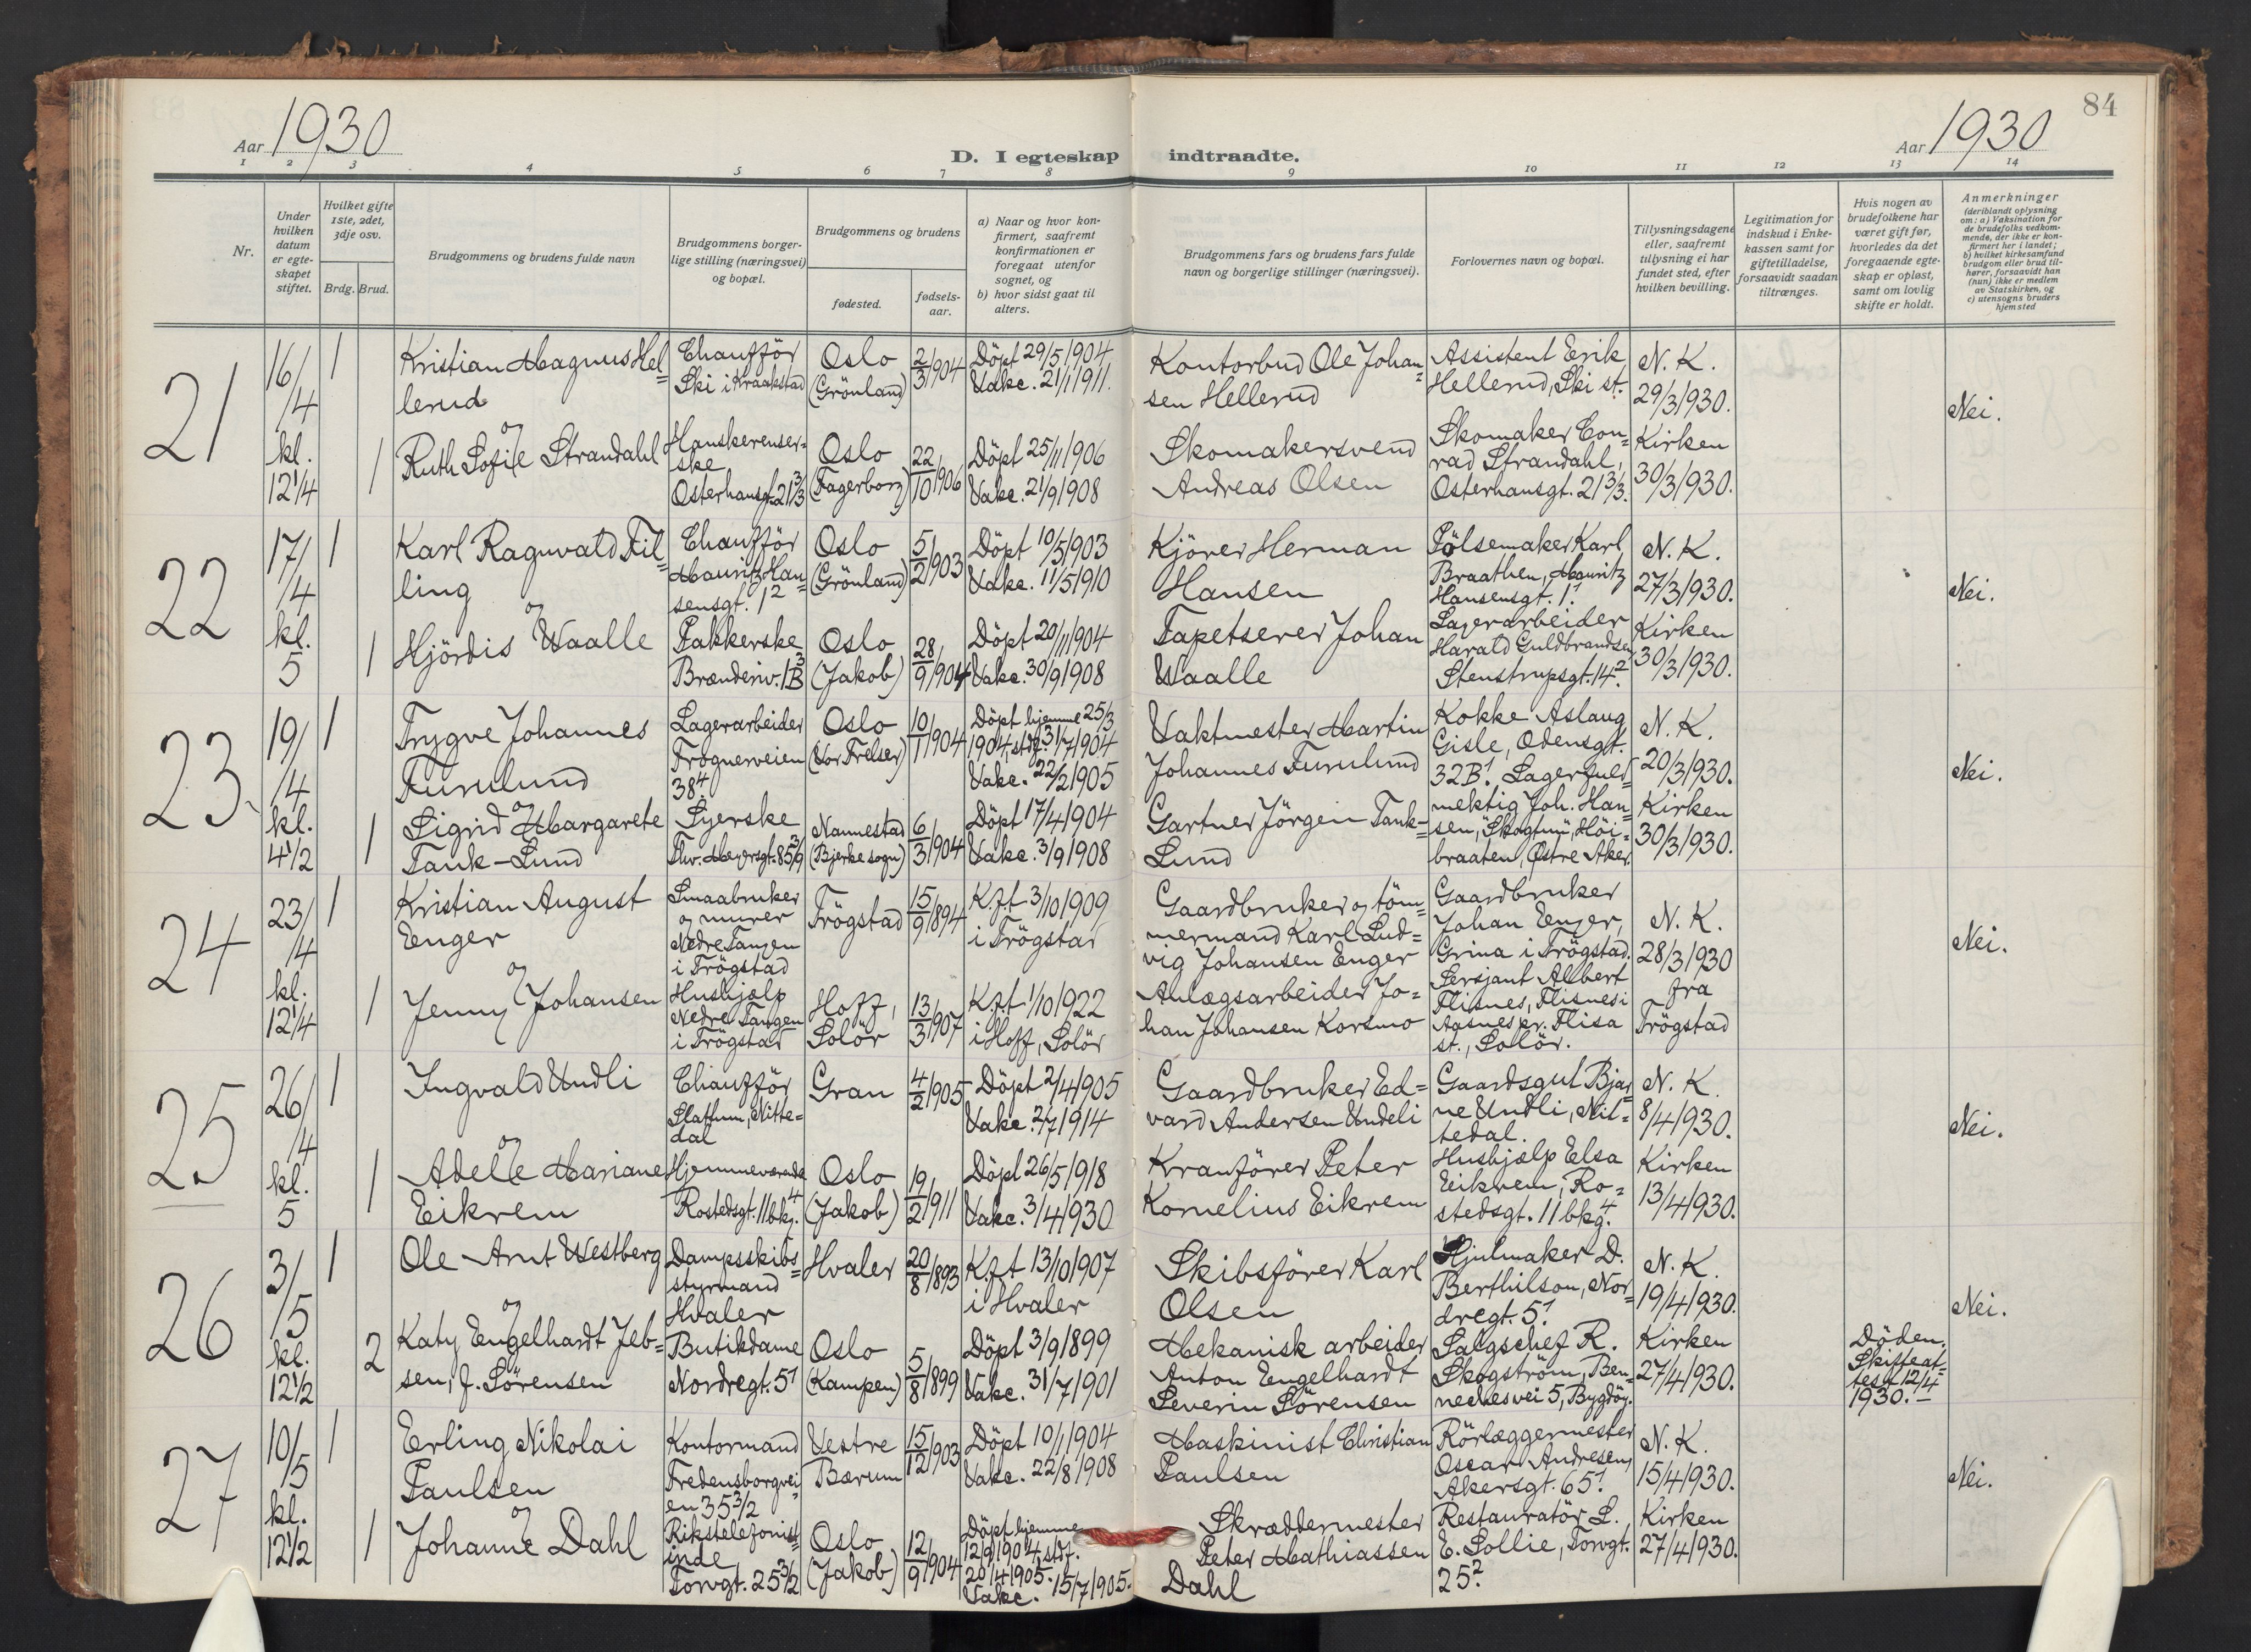 84
Aar 1930
D. I egteskap indtraadte.
Aar 1930
1 2 3 4 5 6 7 8 9 10 11 12 13 14
Nr.
Under hvilken datum er egteskapet stiftet.
Hvilket gifte 1ste, 2det, 3dje osv.
Brdg. Brud.
Brudgommens og brudens fulde navn
Brudgommens borgerlige stilling (næringsvei) og bopæl.
Brudgommens og brudens
fødested.
fødselsaar.
a) Naar og hvor konfirmert, saafremt konfirmationen er foregaat utenfor sognet, og
b) hvor sidst gaat til alters.
Brudgommens fars og brudens fars fulde navn og borgerlige stillinger (næringsvei).
Forlovernes navn og bopæl.
Tillysningsdagene eller, saafremt tillysning ei har fundet sted, efter hvilken bevilling.
Legitimation for indskud i Enkekassen samt for giftetilladelse, forsaavidt saadan tiltrænges.
Hvis nogen av brudefolkene har været gift før, hvorledes da det foregaaende egteskap er opløst, samt om lovlig skifte er holdt.
Anmerkninger
(deriblandt oplysning om: a) Vaksination for de brudefolks vedkommende, der ikke er konfirmert her i landet;
b) hvilket kirkesamfund brudgom eller brud tilhører, forsaavidt han (hun) ikke er medlem av Statskirken, og
c) utensogns bruders hjemsted
21
16/4 kl. 12 1/4
1
Kristian Magnus Hellerud
Chaufför Ski i Kraakstad
Oslo (Grönland)
2/3 1904
Döpt 29/5 1904
Vakc. 21/1 1911.
Kontorbud Ole Johansen Hellerud
Assistent Erik Hellerud, Ski st.
N. K. 29/3 1930.
Nei.
og
1
Ruth Sofie Strandahl
Hanskerenserske
Osterhausgt. 21 3/3
Oslo (Fagerborg)
22/10 1906
Döpt 25/11 1906
Vakc. 21/9 1908
Skomakersvend Andreas Olsen
Skomaker Conrad Strandahl, Osterhausgt. 21 3/3.
Kirken 30/3 1930.
22
17/4 kl. 5
1
Karl Ragnvald Filling
Chaufför Mauritz Hansensgt. 1 2
Oslo (Grönland)
5/2 1903
Döpt 10/5 1903
Vakc. 11/5 1910
Kjörer Herman Hansen
Pölsemaker Karl Braathen, Mauritz Hansensgt. 1 1.
N. K. 27/3 1930.
Nei.
og
1
Hjördis Waalle
Pakkerske Brænderiv. 1B 3
Oslo (Jakob)
28/9 1904
Döpt 20/11 1904
Vakc. 30/9 1908
Tapetserer Johan Waalle
Lagerarbeider Harald Guldbrandsen Stenstrupsgt. 14 2.
Kirken 30/3 1930.
23
19/4 kl. 4 1/2
1
Trygve Johannes Furulund
Lagerarbeider Frognerveien 38 4.
Oslo (Vor Frelser)
10/1 1904
Döpt hjemme 25/3 1904 stdf. 31/7 1904
Vakc. 22/2 1905
Vaktmester Martin Johannes Furulund
Kokke Aslaug Gisle, Odensgt. 32B 1. Lagerfuldmektig Joh. Hansen, "Skogtun", Höibraaten, Østre Aker.
N. K. 20/3 1930.
Nei.
og
1
Sigrid Margarete Tank-Lund
Syerske Thv. Meyersgt. 85 3/9
Nannestad (Bjerke sogn)
6/3 1904
Döpt 17/4 1904
Vakc. 3/9 1908
Gartner Jörgen Tank-Lund
Kirken 30/3 1930.
24
23/4 kl. 12 1/4
1
Kristian August Enger
Smaabruker og murer Nedre Tangen i Trögstad
Trögstad
15/9 1894
Kft 3/10 1909 i Trögstad
Gaardbruker og tömmermand Karl Ludvig Johansen Enger
Gaardbruker Johan Enger, Grina i Trögstad.
N. K. 28/3 1930 fra Trögstad
Nei.
og
1
Jenny Johansen
Hushjælp Nedre Tangen i Trögstad
Hoff, Solör
13/3 1907
Kft 1/10 1922 i Hoff, Solör
Anlægsarbeider Johan Johansen Korsmo
Sersjant Albert Flisnes, Flisnes i Aasnes pr. Flisa st., Solör.
25
26/4 kl. 5
1
Ingvald Undli
Chaufför Slattum, Nittedal
Gran
4/2 1905
Döpt 2/4 1905
Vakc. 2/7 1914
Gaardbruker Edvard Andersen Undeli
Gaardsgut Bjarne Undli, Nittedal.
N. K. 8/4 1930.
Nei.
og
1
Adele Mariane Eikrem
Hjemmeværende Rostedsgt. 11 bkg. 4
Oslo (Jakob)
19/2 1911
Döpt 26/5 1918
Vakc. 3/4 1930
Kranförer Peter Kornelius Eikrem
Hushjælp Elsa Eikrem, Rostedsgt. 11 bkg. 4
Kirken 13/4 1930.
26
3/5 kl. 12 1/2
1
Ole Arnt Westberg
Dampskibsstyrmand Hvaler
Hvaler
20/8 1893
Kft 13/10 1907 i Hvaler
Skibsförer Karl Olsen
Hjulmaker D. Berthilson, Nordregt. 5 1
N. K. 19/4 1930.
Nei.
og
2
Katy Engelhardt Jebsen, f. Sörensen
Butikdame Nordregt. 5 1
Oslo (Kampen)
5/8 1899
Döpt 3/9 1899
Vakc. 31/7 1901
Mekanisk arbeider Anton Engelhardt Severin Sörensen
Salgschef R. Skogström, Bennechesvei 5, Bygdöy.
Kirken 27/4 1930.
Döden. Skifteattest 12/4 1930. —
27
10/5 kl. 12 1/2
1
Erling Nikolai Paulsen
Kontormand Fredensborgveien 35 3/2
Vestre Bærum
15/12 1903
Döpt 10/1 1904
Vakc. 22/8 1908
Maskinist Christian Paulsen
Rörlæggermester Oscar Andresen, Akersgt. 65 1.
N. K. 15/4 1930.
Nei.
og
1
Johanne Dahl
Rikstelefonistinde Torvgt. 25 3/2
Oslo (Jakob)
12/9 1904
Döpt hjemme 12/9 1904, stdf. 20/4 1905.
Vakc. 15/7 1905.
Skræddermester Peter Mathiassen Dahl
Restauratör L. E. Sollie, Torvgt. 25 2.
Kirken 27/4 1930.